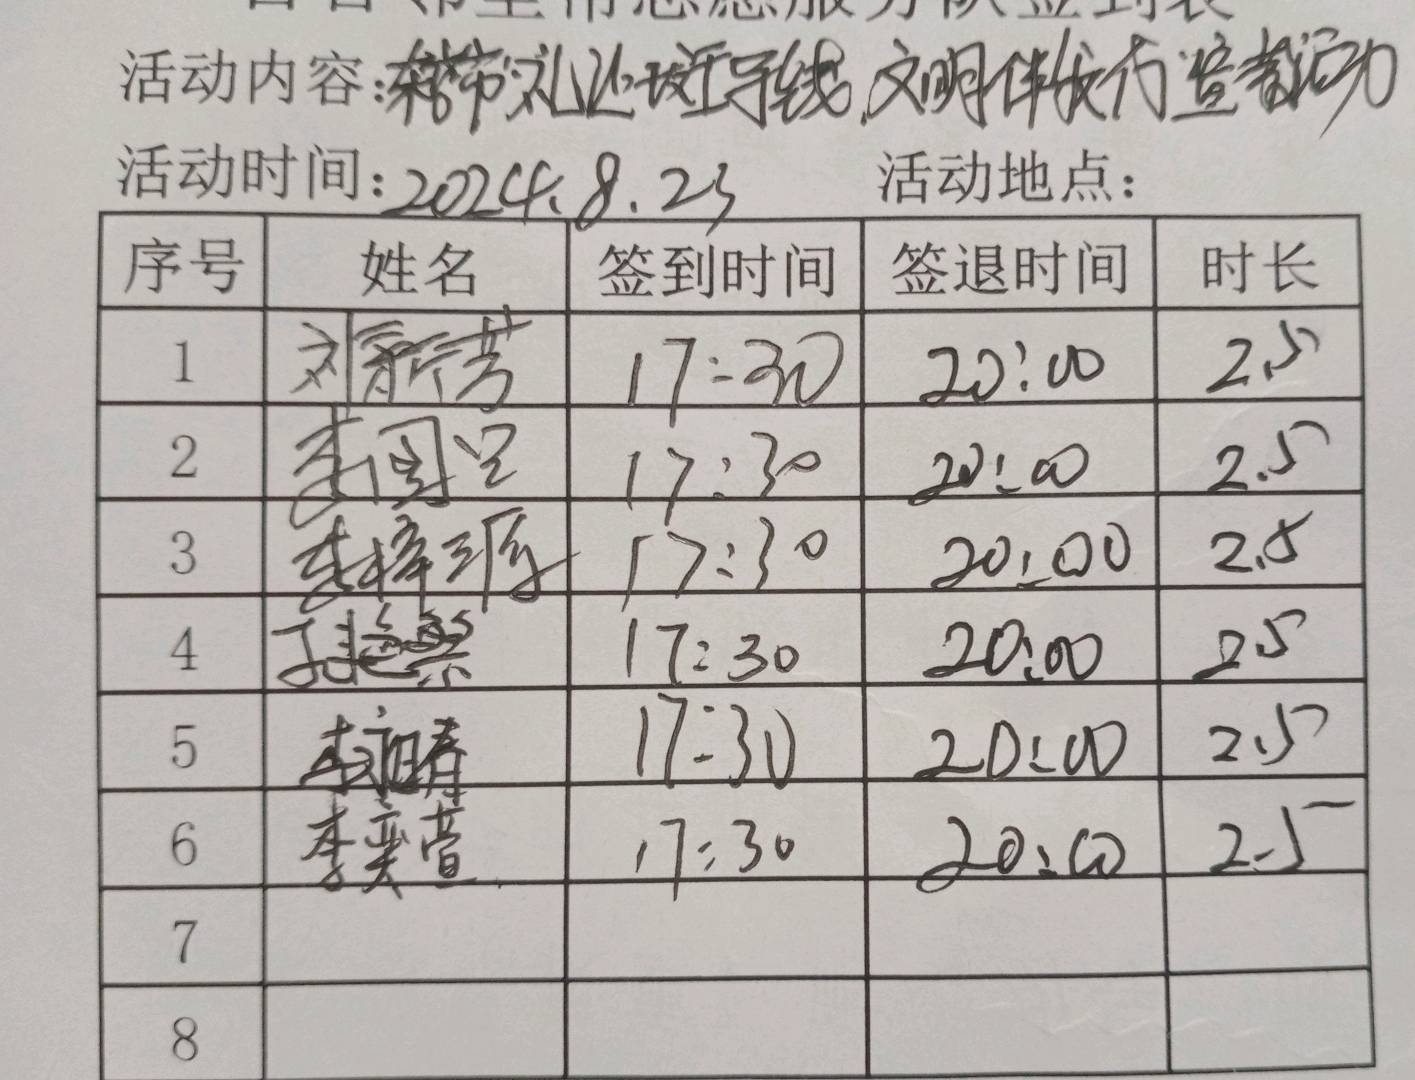 服务队签到表
活动内容:礼让斑马线,文明伴我行宣活动
活动时间:2024.8.23 活动地点:
序号 姓名 签到时间 签退时间 时长
1 刘新芳 17:30 20:00 2.5
2 李国 17:30 20:00 2.5
3 李梓 17:30 20:00 2.5
4 17:30 20:00 2.5
5 李春 17:30 20:00 2.5
6 李奕萱 17:30 20:00 2.5
7
8